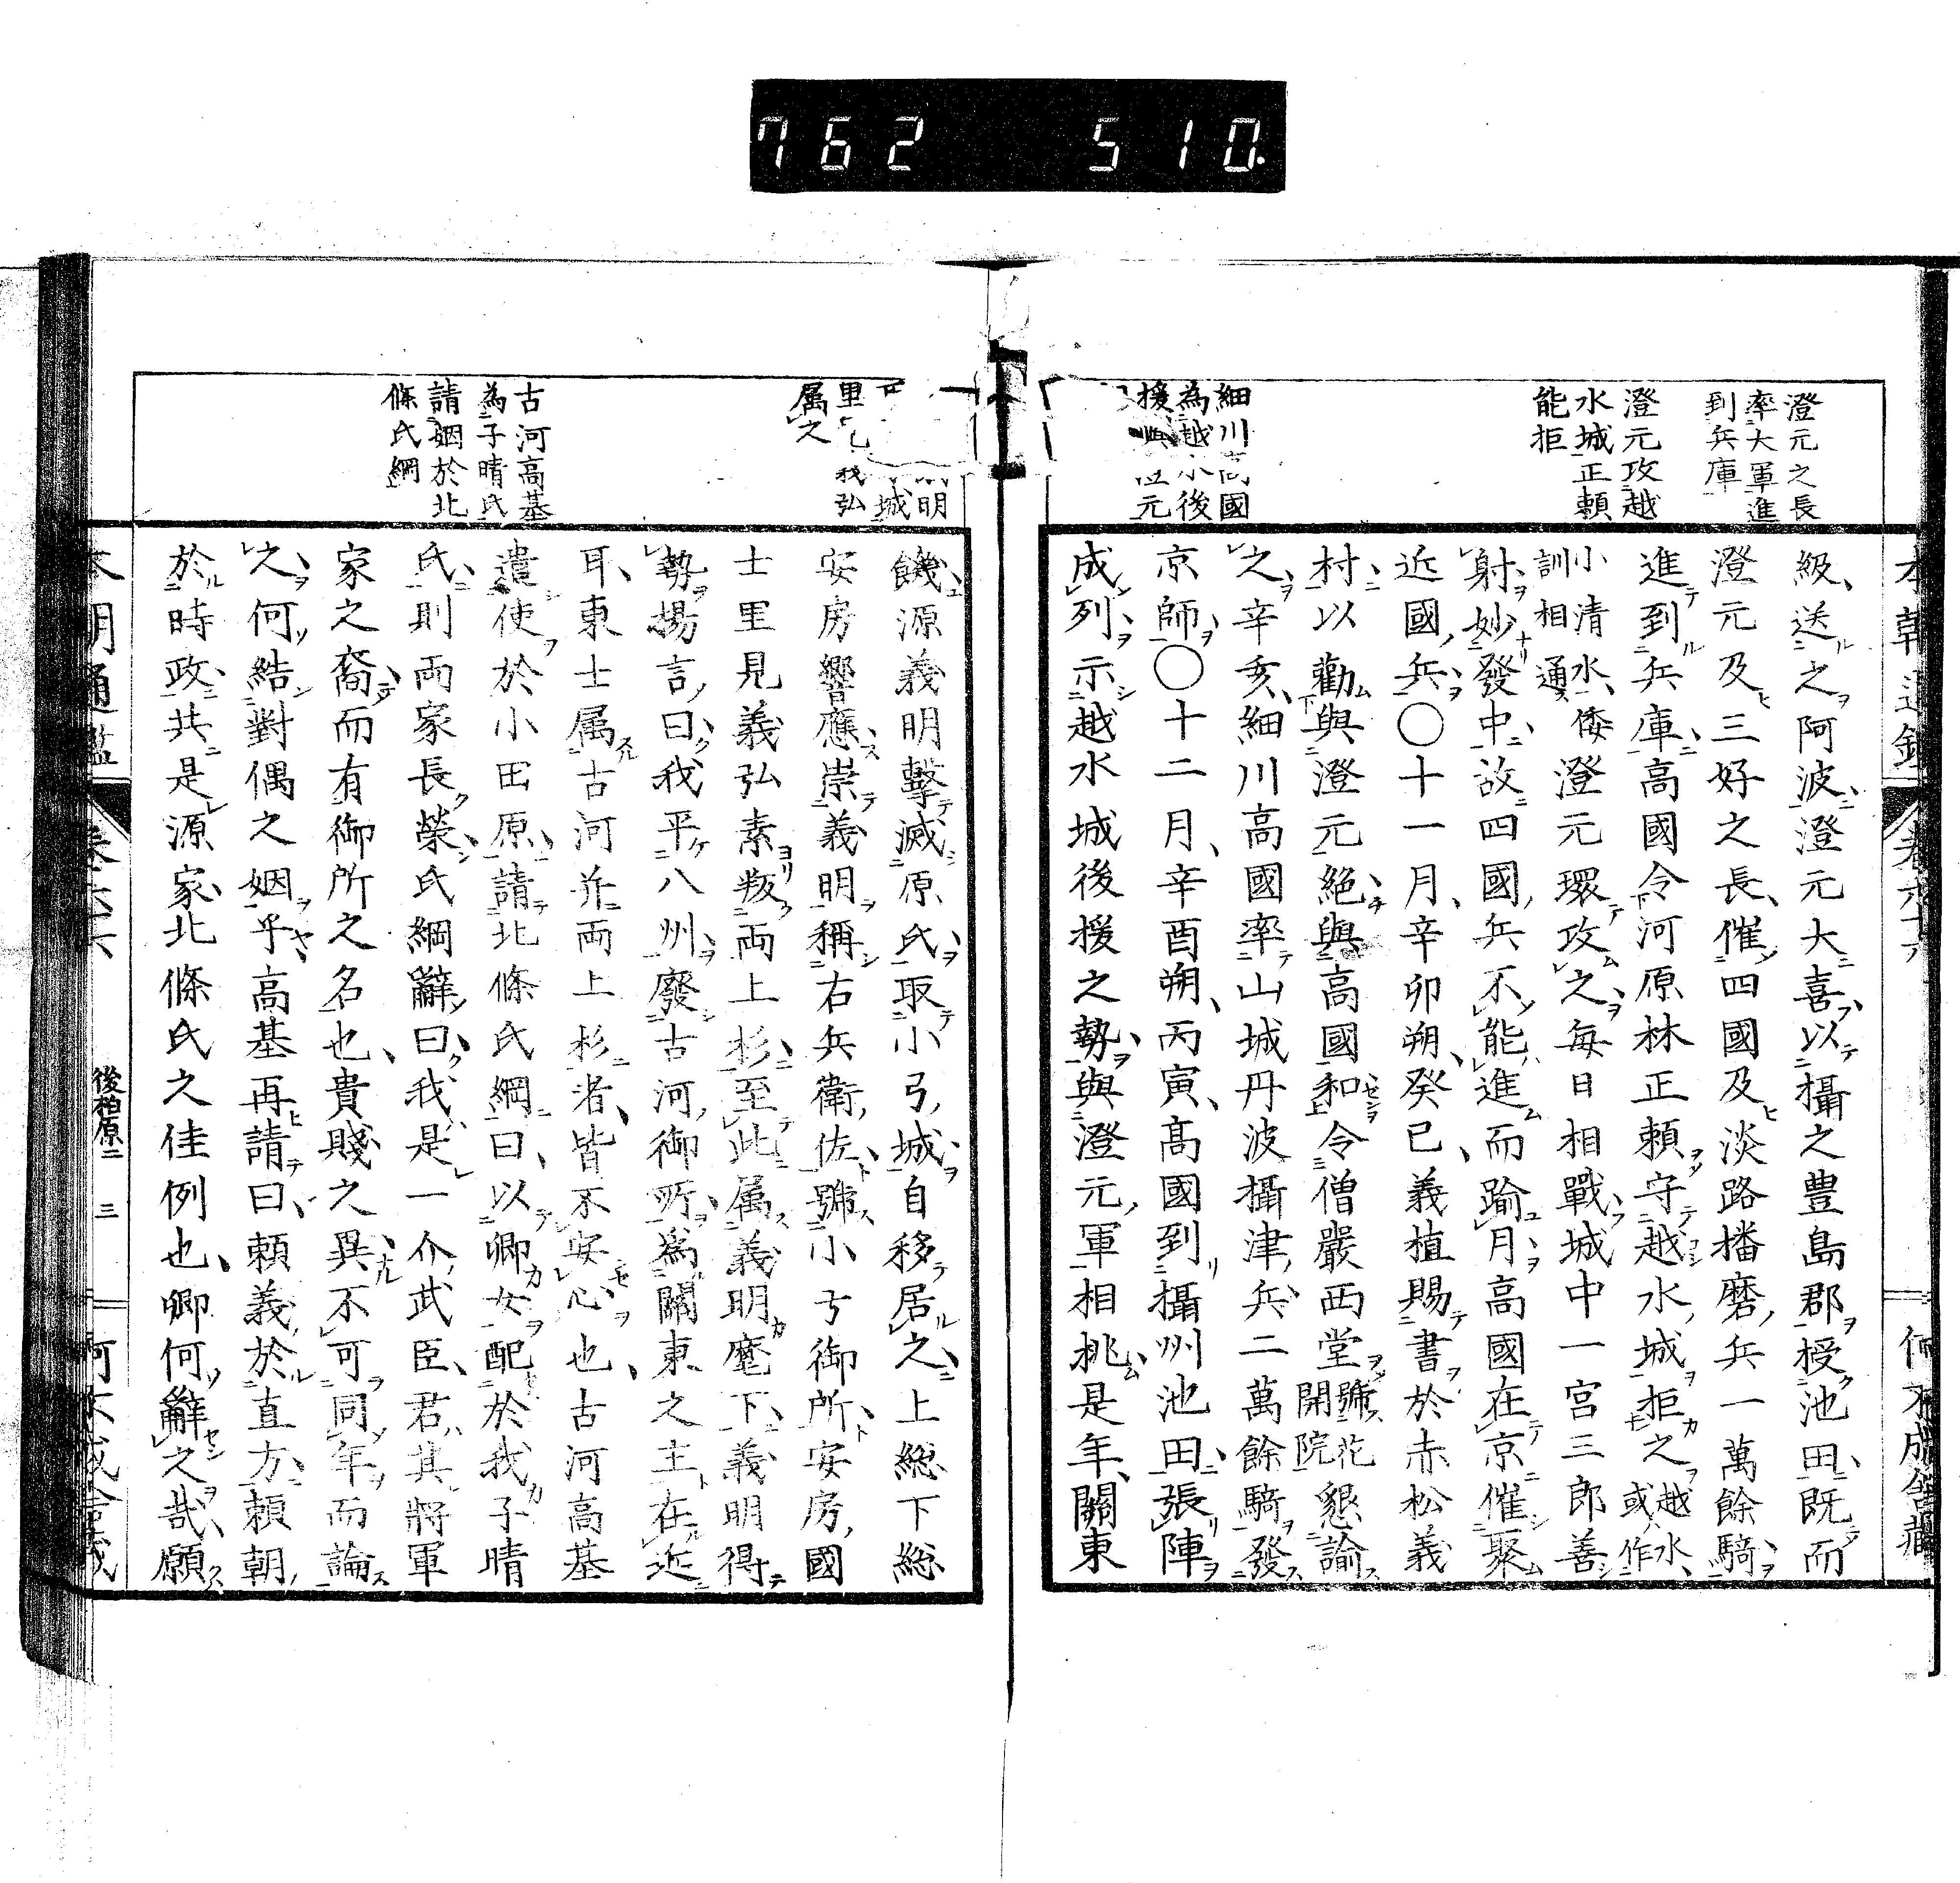 762 510.
澄元之長
率大軍進
到兵庫
澄元攻越
水城正頼
能拒
細川高國
為越水後
援與澄元
級送之阿波澄元大喜以攝之豊島郡授池田既而
澄元及三好之長催四國及淡路播磨兵一萬餘騎
進到兵庫高國令河原林正頼守越水城拒之越水或作
小清水倭訓相通澄元環攻之毎日相戰城中一宮三郎善
射妙發中故四國兵不能進而踰月高國在京催聚
近國兵〇十一月辛卯朔癸已義植賜書於赤松義
村以勸與澄元絕與高國和令僧嚴西堂號花開院懇諭
之辛亥細川高國率山城丹波攝津兵二萬餘騎發
京師〇十二月辛酉朔丙寅高國到攝州池田張陣
成列示越水城後援之勢與澄元軍相挑是年關東
明
城
里見義弘
属之
古河高基
為子晴氏
請姻於北
條氏綱
饑源義明擊滅原氏取小弓城自移居之上総下総
安房響應崇義明稱右兵衛佐號小弓御所安房國
士里見義弘素叛両上杉至此属義明麾下義明得
勢揚言曰我平八州廢古河御所為關東之主在近
耳東士属古河并両上杉者皆不安心也古河高基
遣使於小田原請北條氏綱曰以卿女配於我子晴
氏則両家長榮氏綱辭曰我是一介武臣君其將軍
家之裔而有御所之名也貴賤之異不可同年而論
之何結對偶之姻乎高基再請曰頼義於直方頼朝
於時政共是源家北條氏之佳例也卿何辭之哉願
後柏原二 三